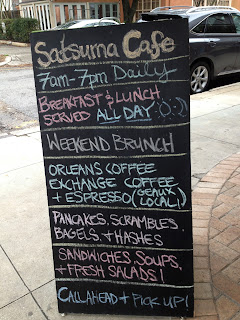 Satsuma Cafe
7am-7pm Daily
BREAKFAST & LUNCH
SERVED ALL DAY :) :)
WEEKEND BRUNCH
ORLEANS COFFEE
EXCHANGE COFFEE
+ ESPRESSO (GEAUX LOCAL!)
PANCAKES, SCRAMBLES,
BAGELS, + HASHES
SANDWICHES, SOUPS,
+ FRESH SALADS!
CALL AHEAD + PICK UP!